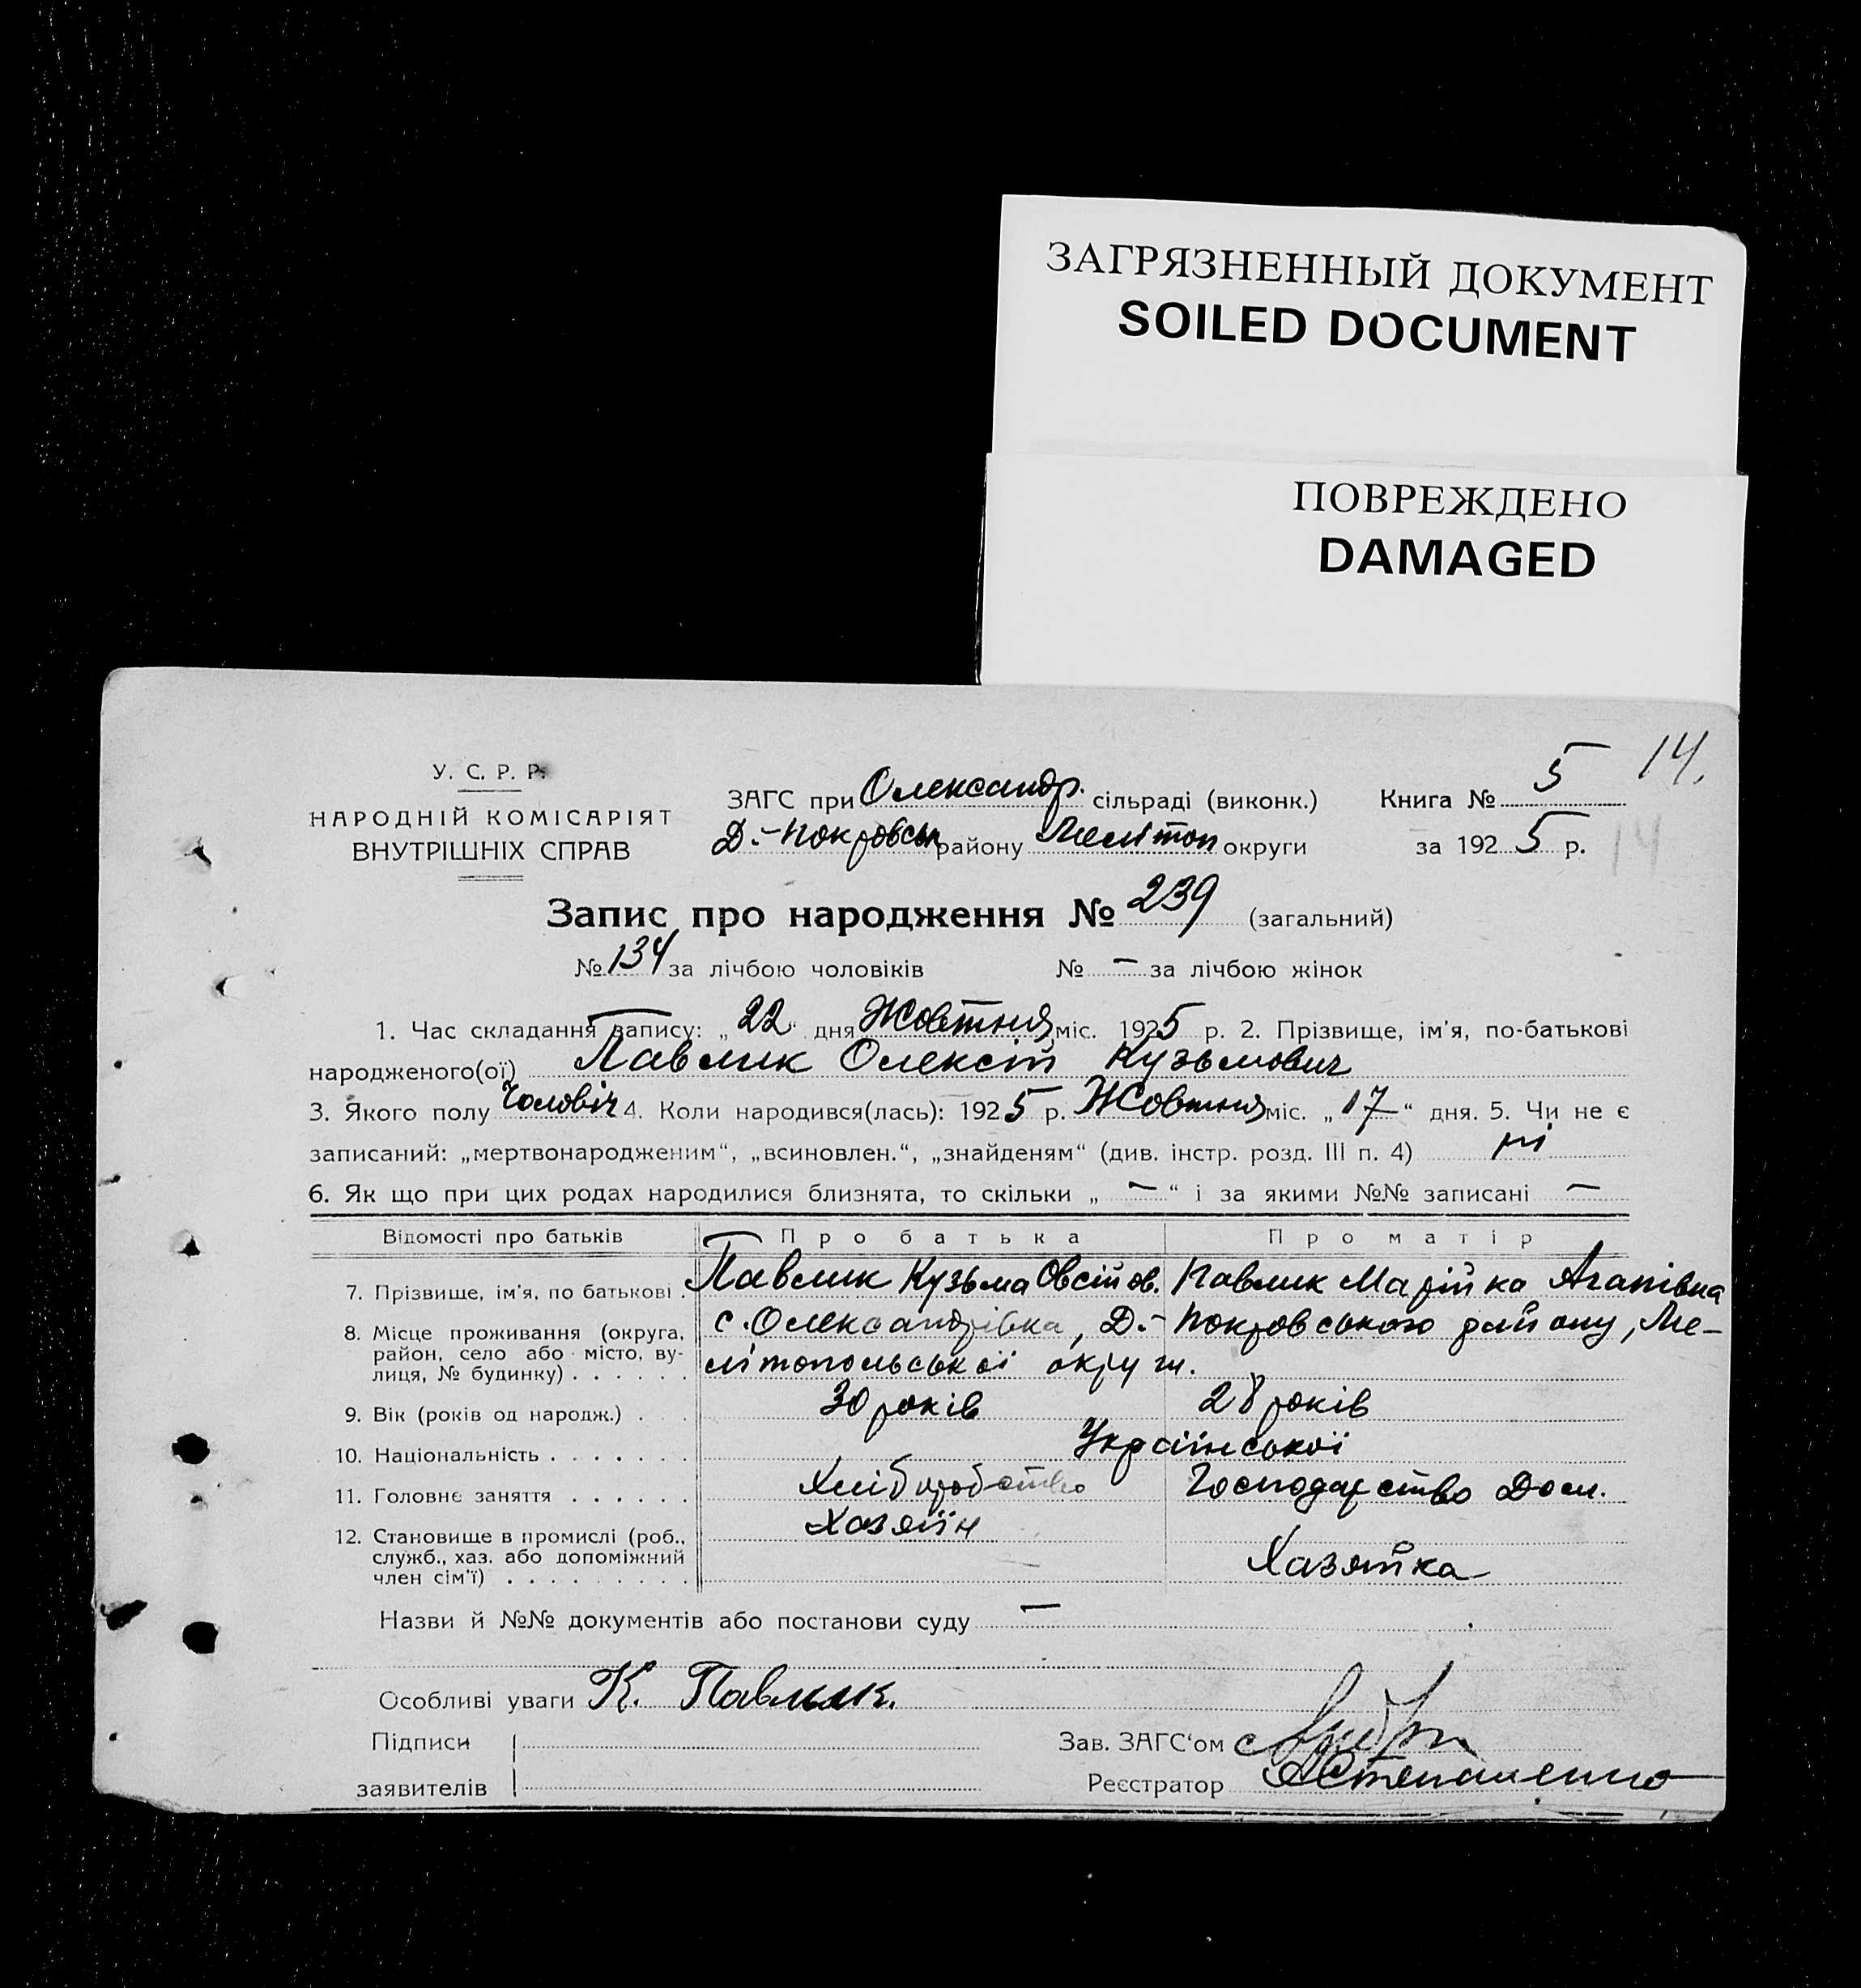 ЗАГРЯЗНЕННЫЙ ДОКУМЕНТ
SOILED DOCUMENT
ПОВРЕЖДЕНО
DAMAGED
14.
У. С. Р. Р.
НАРОДНІЙ КОМІСАРІЯТ
ВНУТРІШНІХ СПРАВ
ЗАГС при Олександр. сільраді (виконк.) Книга № 5
Д.-Покровськ району Мелітоп округи за 1925 р. 14
Запис про народження № 239 (загальний)
№ 134 за лічбою чоловіків № — за лічбою жінок
1. Час складання запису: „22“ дня Жовтня міс. 1925 р. 2. Прізвище, ім'я, по-батькові
народженого(ої) Павлик Олексій Кузьмович
3. Якого полу Чоловіч 4. Коли народився(лась): 1925 р. Жовтня міс. „17“ дня. 5. Чи не є
записаний: „мертвонародженим“, „всиновлен.“, „знайденям“ (див. інстр. розд. III п. 4) ні
6. Як що при цих родах народилися близнята, то скільки „—“ і за якими №№ записані —
Відомості про батьків Про батька Про матір
7. Прізвище, ім'я, по батькові . Павлик Кузьма Овсійов. Павлик Марійка Агапівна
8. Місце проживання (округа, район, село або місто, вулиця, № будинку) . . . . . . с. Олександрівка, Д.-Покровського району, Ме-
літопольської округи.
9. Вік (років од народж.) . . 30 років 28 років
10. Національність . . . . . . . Української
11. Головне заняття . . . . . . Хліборобство Господарство Дом.
12. Становище в промислі (роб., служб., хаз. або допоміжний член сім'ї) . . . . . . . . . Хазяїн Хазяйка
Назви й №№ документів або постанови суду —
Особливі уваги К. Павлик.
Підписи
заявителів
Зав. ЗАГС'ом
Реєстратор АСтепаненко